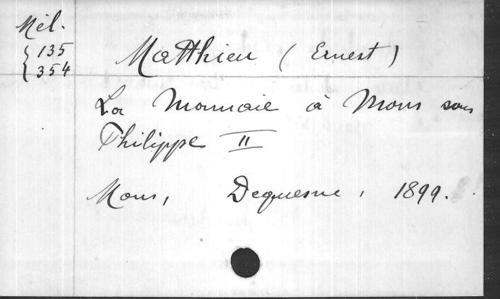 Mél.
135
354
Matthieu (Ernest)
La Monnaie à Mons sous
Philippe II
Mons, Dequesne, 1899.